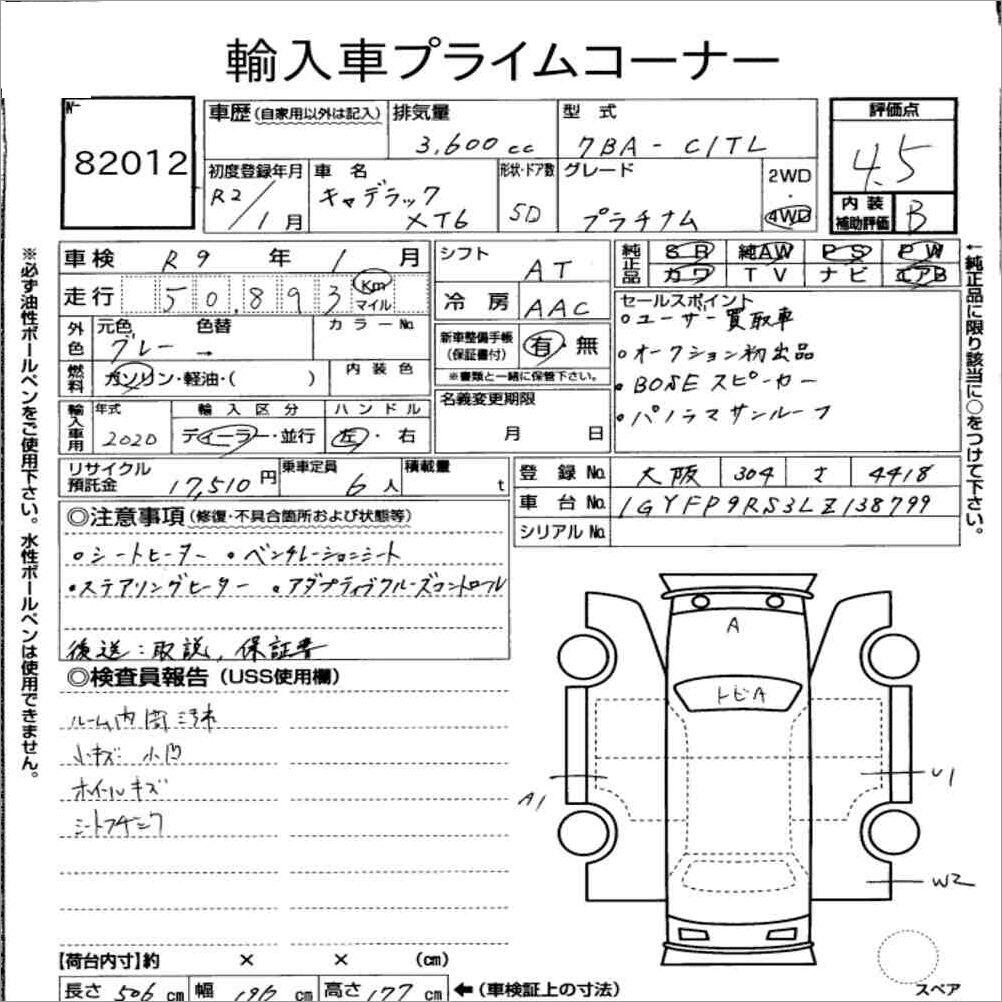 輸入車プライムコーナー
82012
車歴 (自家用以外は記入)
排気量
3,600 cc
型式
7BA - C1TL
評価点
4.5
初度登録年月
R2/1月
車名
キャデラック
XT6
形状・ドア数
5D
グレード
プラチナム
2WD
・
4WD
内装
補助評価
B
車検 R9年 1月
走行 50,893 Km
マイル
シフト
AT
冷房 AAC
純正品
SR 純AW PS PW
カワ TV ナビ エアB
外色
元色 色替 カラーNo.
グレー →
燃料
ガソリン・軽油・( )
内装色
新車整備手帳
(保証書付)
有・無
※書類と一緒に保管下さい。
セールスポイント
○ユーザー買取車
○オークション初出品
・BOSEスピーカー
・パノラマサンルーフ
輸入車用
年式
2020
輸入区分
ディーラー・並行
ハンドル
左・右
名義変更期限
月 日
リサイクル
預託金
17,510円
乗車定員
6人
積載量
t
登録No. 大阪 304 さ 4418
車台No. 1GYFP9RS3LZ138799
シリアルNo.
◎注意事項 (修復・不具合箇所および状態等)
○シートヒーター ○ベンチレーションシート
・ステアリングヒーター ・アダプティブクルーズコントロール
後送:取説、保証書
◎検査員報告 (USS使用欄)
ルーム内間汚れ
小キズ 小凹
ホイールキズ
A
トビA
A1
U1
W2
スペア
【荷台内寸】約 × × (cm)
長さ 506 cm 幅 196 cm 高さ 177 cm ←(車検証上の寸法)
※必ず油性ボールペンをご使用下さい。水性ボールペンは使用できません。
←純正品に限り該当に○をつけて下さい。